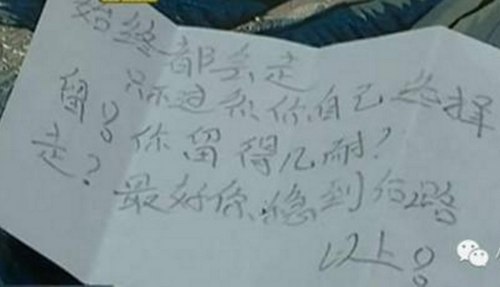 始终都会走
只不过系你自己选择
留。你留得几耐?
走?最好你稳到路
以上。